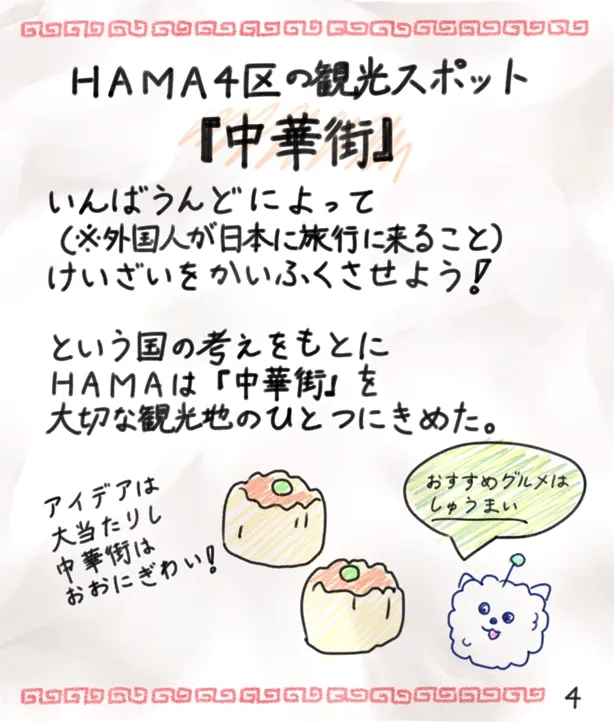 HAMA4区の観光スポット
『中華街』
いんばうんどによって
(※外国人が日本に旅行に来ること)
けいざいをかいふくさせよう!
という国の考えをもとに
HAMAは『中華街』を
大切な観光地のひとつにきめた。
アイデアは
大当たりし
中華街は
おおにぎわい!
おすすめグルメは
しゅうまい
4